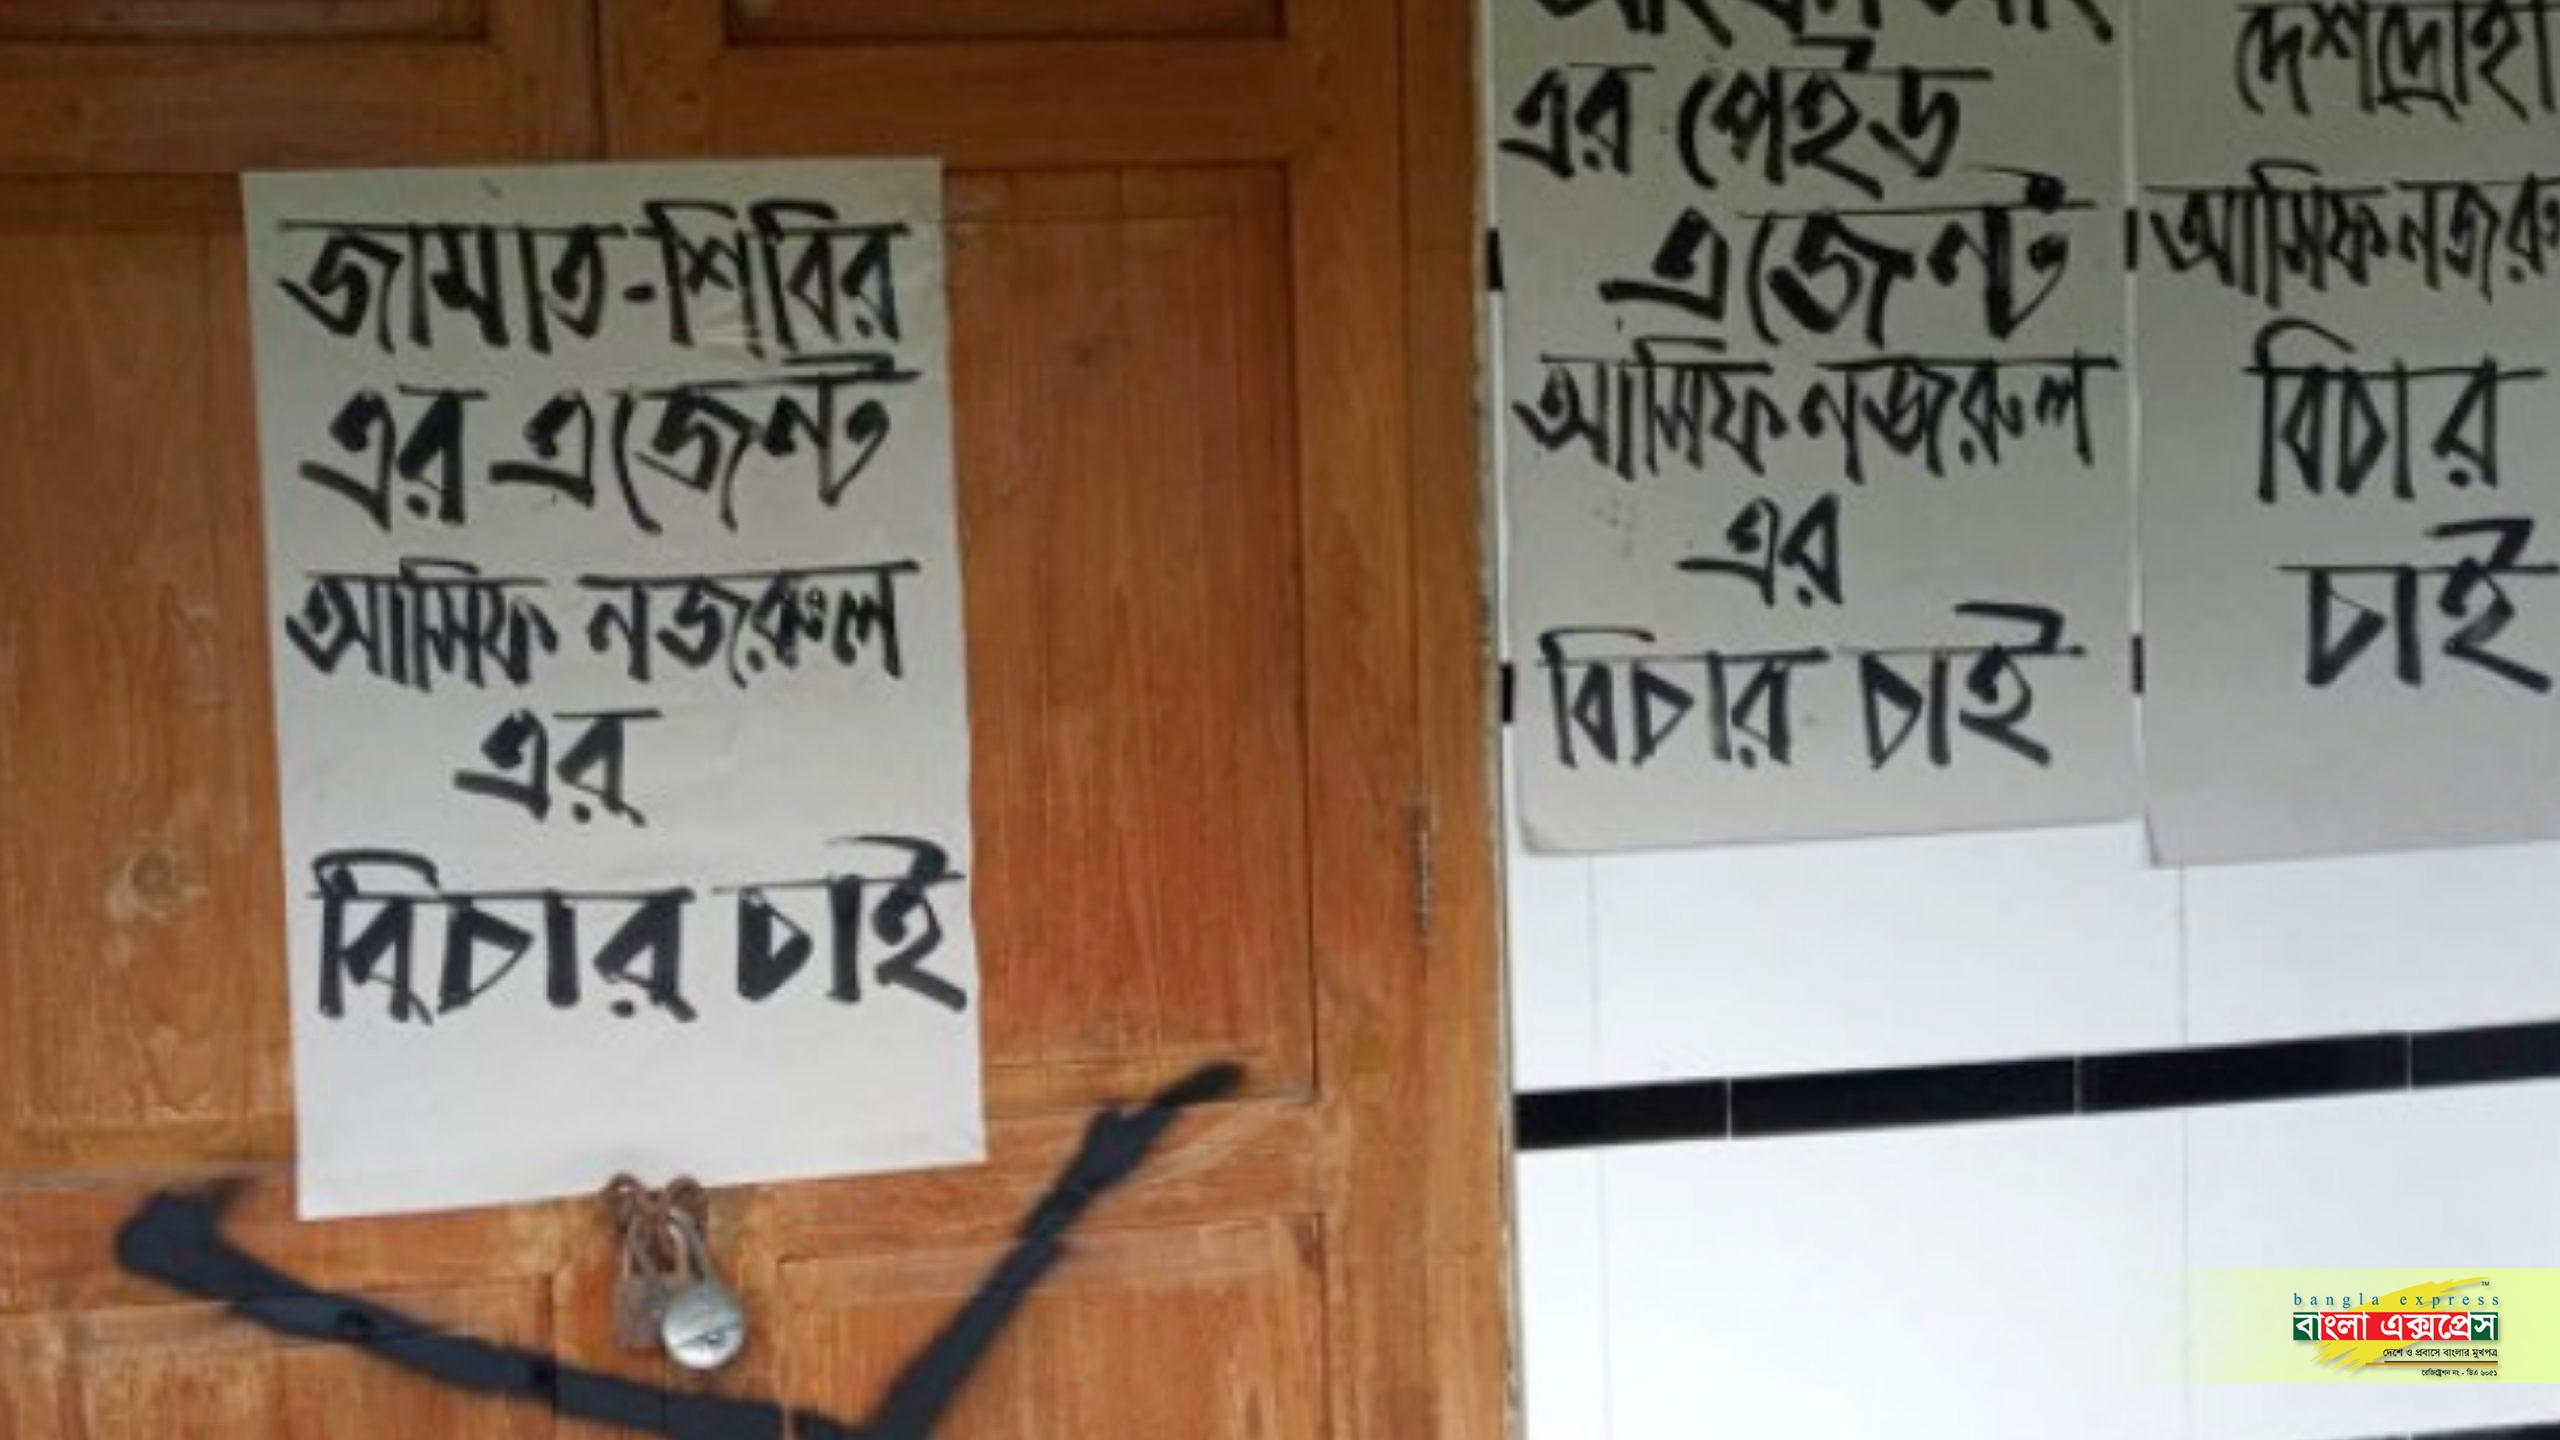 জামাত-শিবির
এর এজেন্ট
আসিফ নজরুল
এর
বিচার চাই
এর পেইড
এজেন্ট
আসিফ নজরুল
এর
বিচার চাই
দেশদ্রোহী
আসিফ নজরু
বিচার
চাই
bangla express
বাংলা এক্সপ্রেস
দেশে ও প্রবাসে বাংলার মুখপত্র
রেজিষ্ট্রেশন নং - ডিএ ৬০৫১